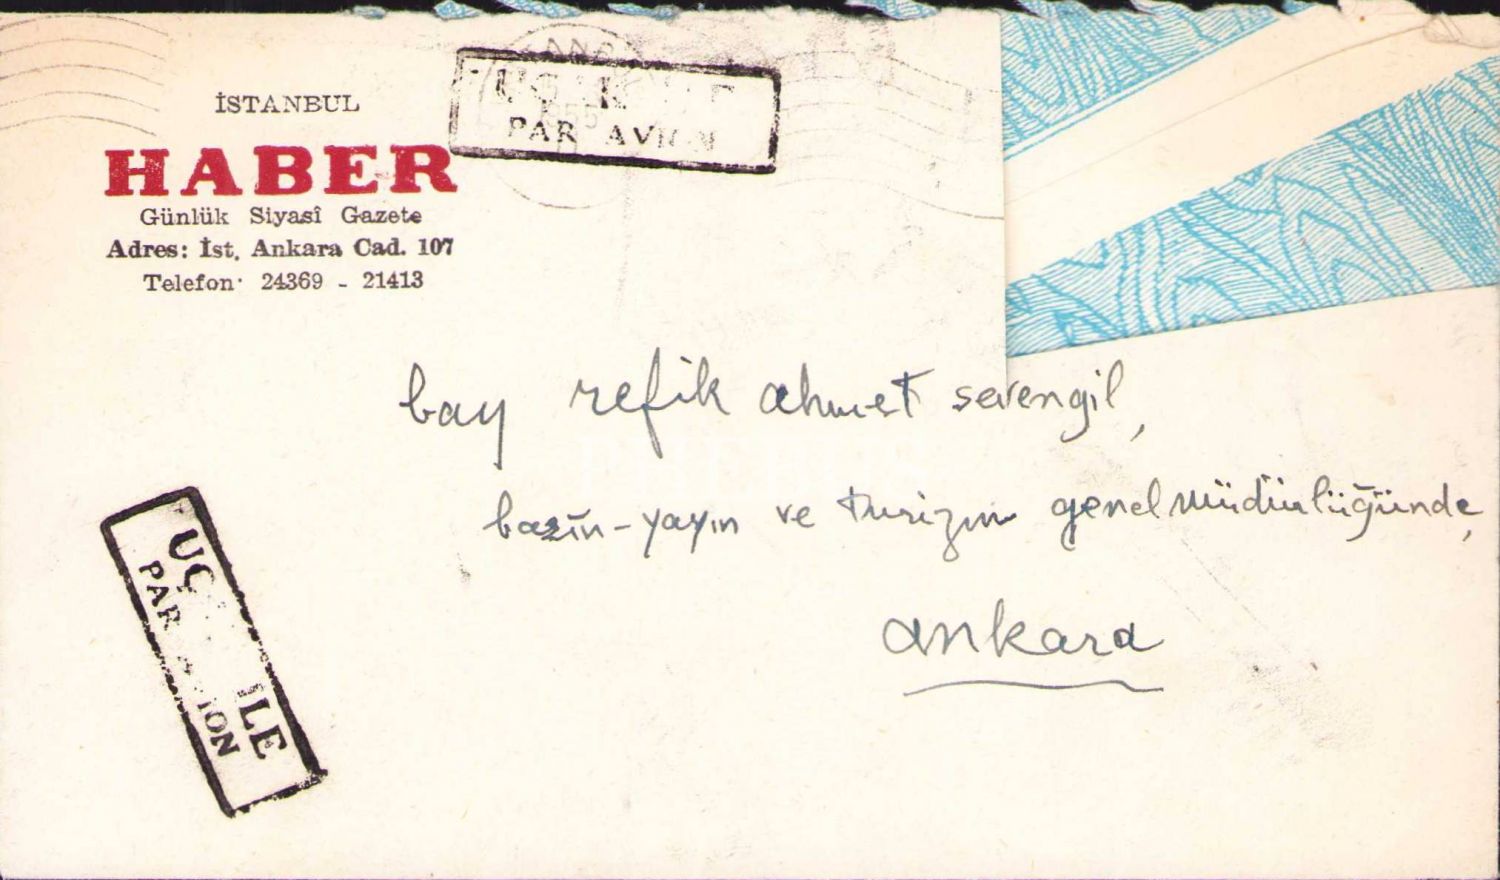 İSTANBUL
HABER
Günlük Siyasî Gazete
Adres: İst. Ankara Cad. 107
Telefon· 24369 - 21413
PAR AVION
bay refik ahmet sevengil,
basın-yayın ve turizm genel müdürlüğünde,
ankara
UÇ İLE
PAR ION
PHEBUS